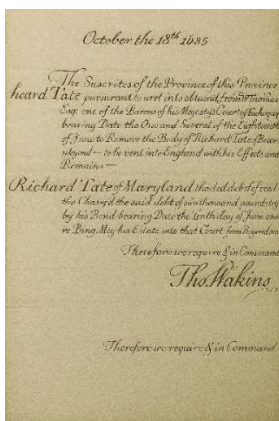 October the 18th 1685
The Suscrites of the Province of this Panince
heard Tate purwrant to uret into obtained from W Thomas
Esqr one of the Barons of his Majestys Court of
bearing Date the One and Several of the Eighteenth
of June to Remove the Body of Richard Tate of
beyond — to be vent into England with his Effects and
Remains —
Richard Tate of Maryland
the Chargd the said debt of thousand pounds
by his Bond bearing Date the tenth day of June one
re Ding May his Estate into that Court from
Therefore we require & in Command
Tho. Wakins
Therefore we require & in Command